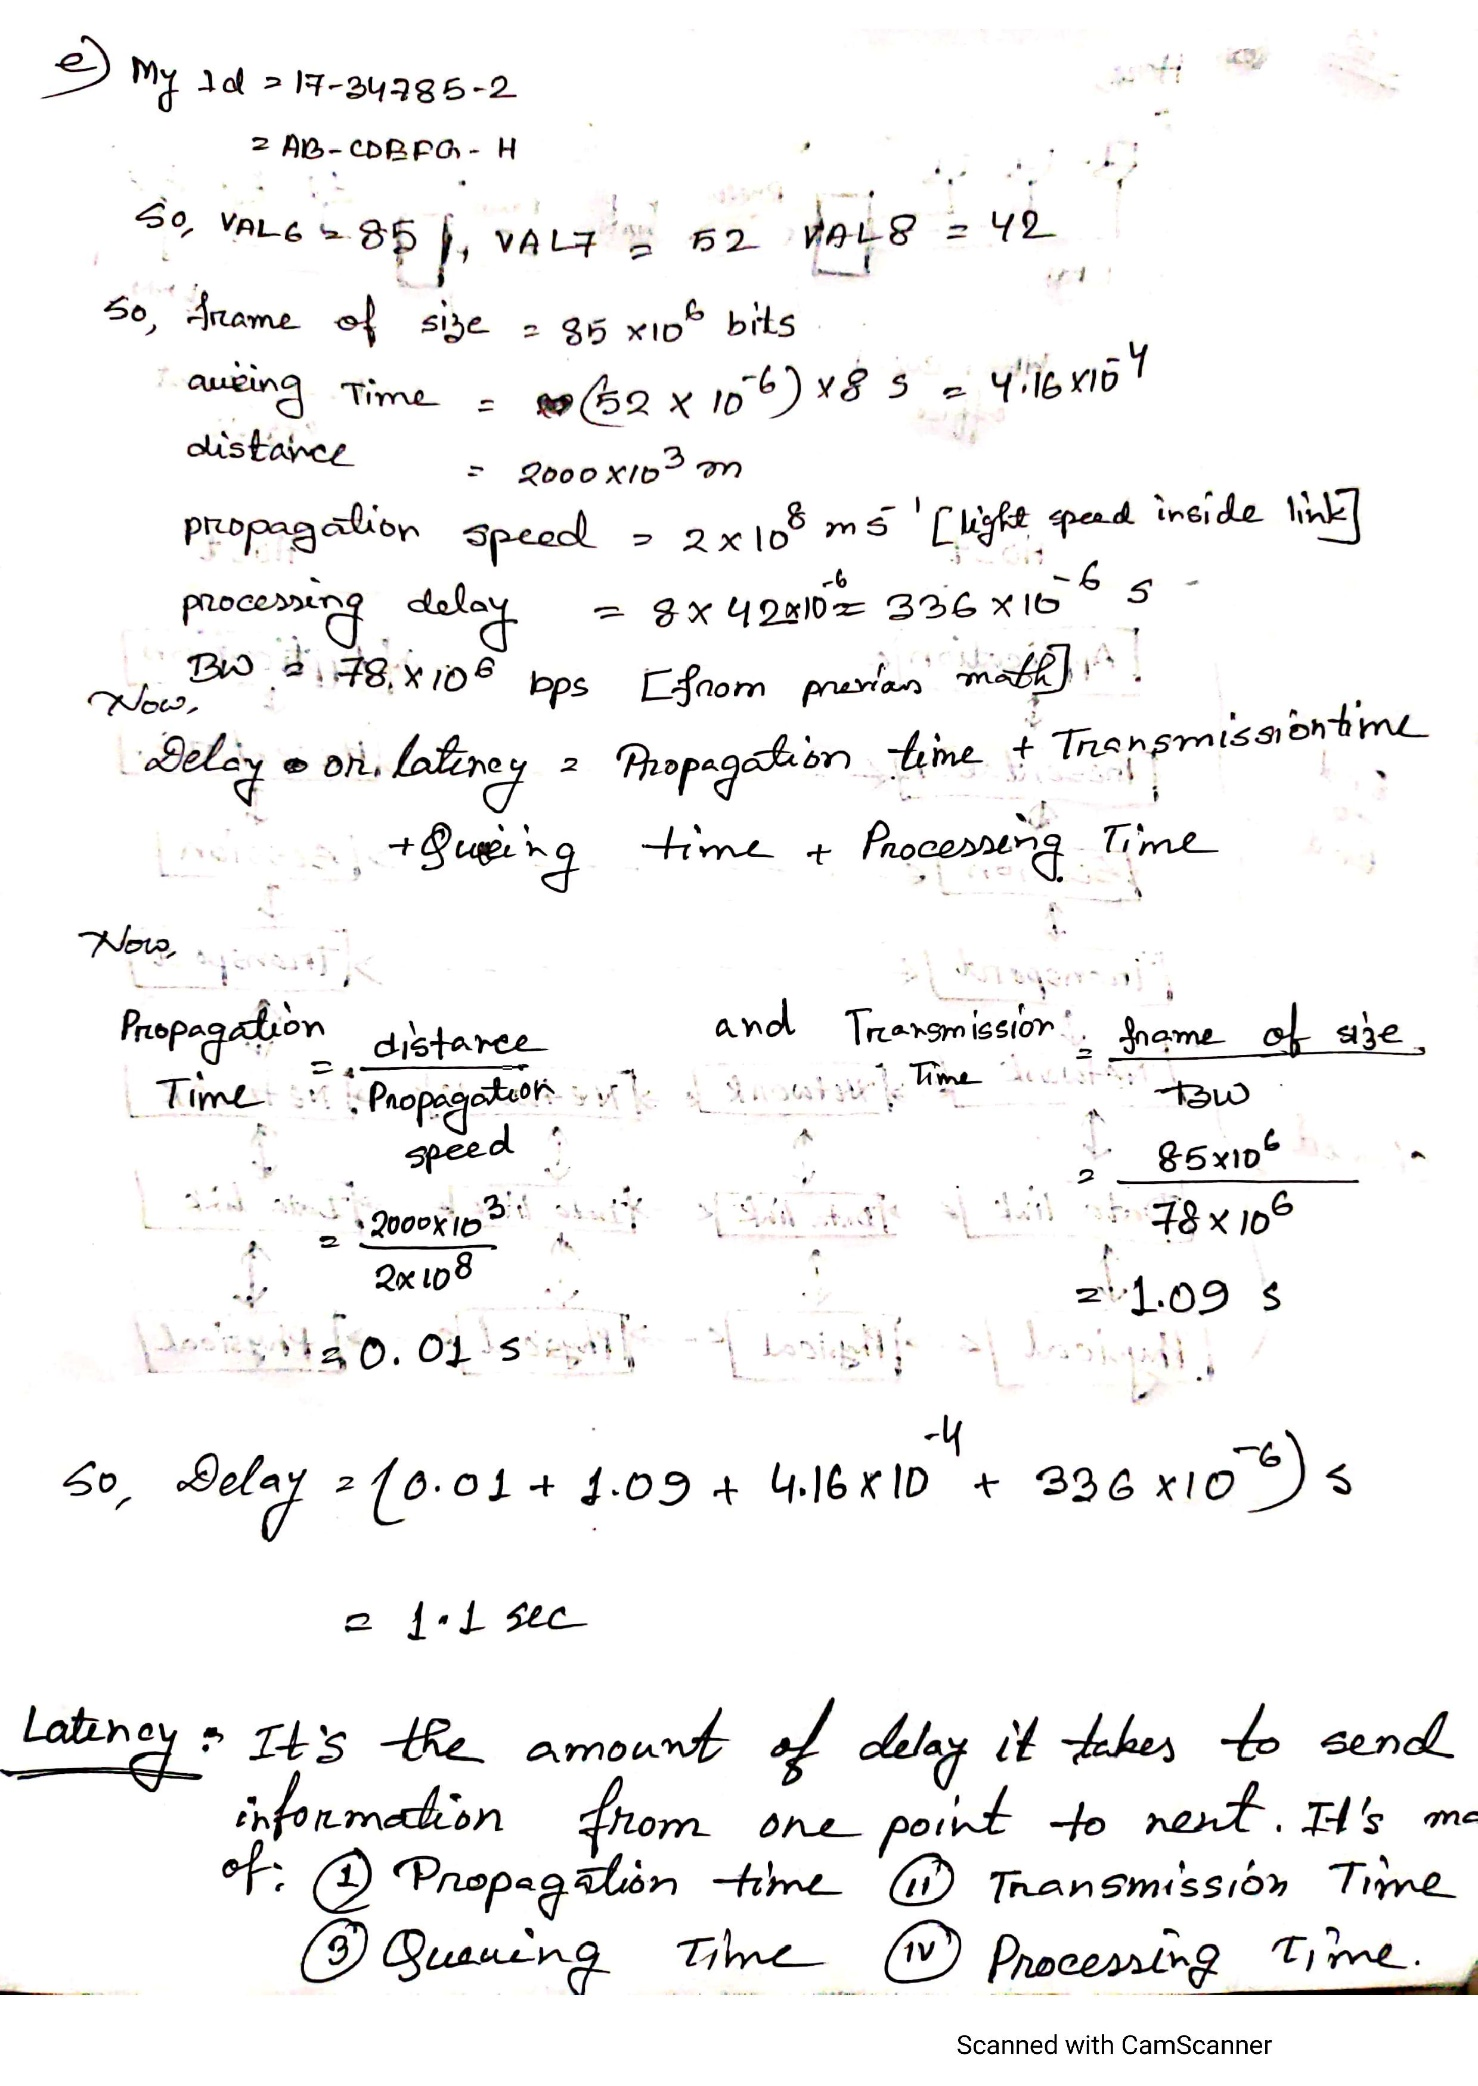 e) My Id = 17-34785-2
= AB-CDEFG-H
So, VAL6 = 85, VAL7 = 52 VAL8 = 42
So, frame of size = 85 x10^6 bits
queing Time = (52 x 10^-6) x 8 s = 4.16 x10^-4
distance = 2000x10^3 m
propagation speed = 2x10^8 ms^-1 [light speed inside link]
processing delay = 8 x 42x10^-6 = 336 x10^-6 s
BW = 78 x 10^6 bps [from previous math]
Now,
Delay or, latency = Propagation time + Transmission time
+ Queing time + Processing Time
Now,
Propagation Time = distance / Propagation speed
= 2000x10^3 / 2x10^8
= 0.01 s
and Transmission Time = frame of size / BW
= 85x10^6 / 78x10^6
= 1.09 s
So, Delay = (0.01 + 1.09 + 4.16 x 10^-4 + 336 x10^-6) s
= 1.1 sec
Latency: It's the amount of delay it takes to send
information from one point to next. It's
of: (1) Propagation time (ii) Transmission Time
(3) Queuing Time (iv) Processing Time.
Scanned with CamScanner